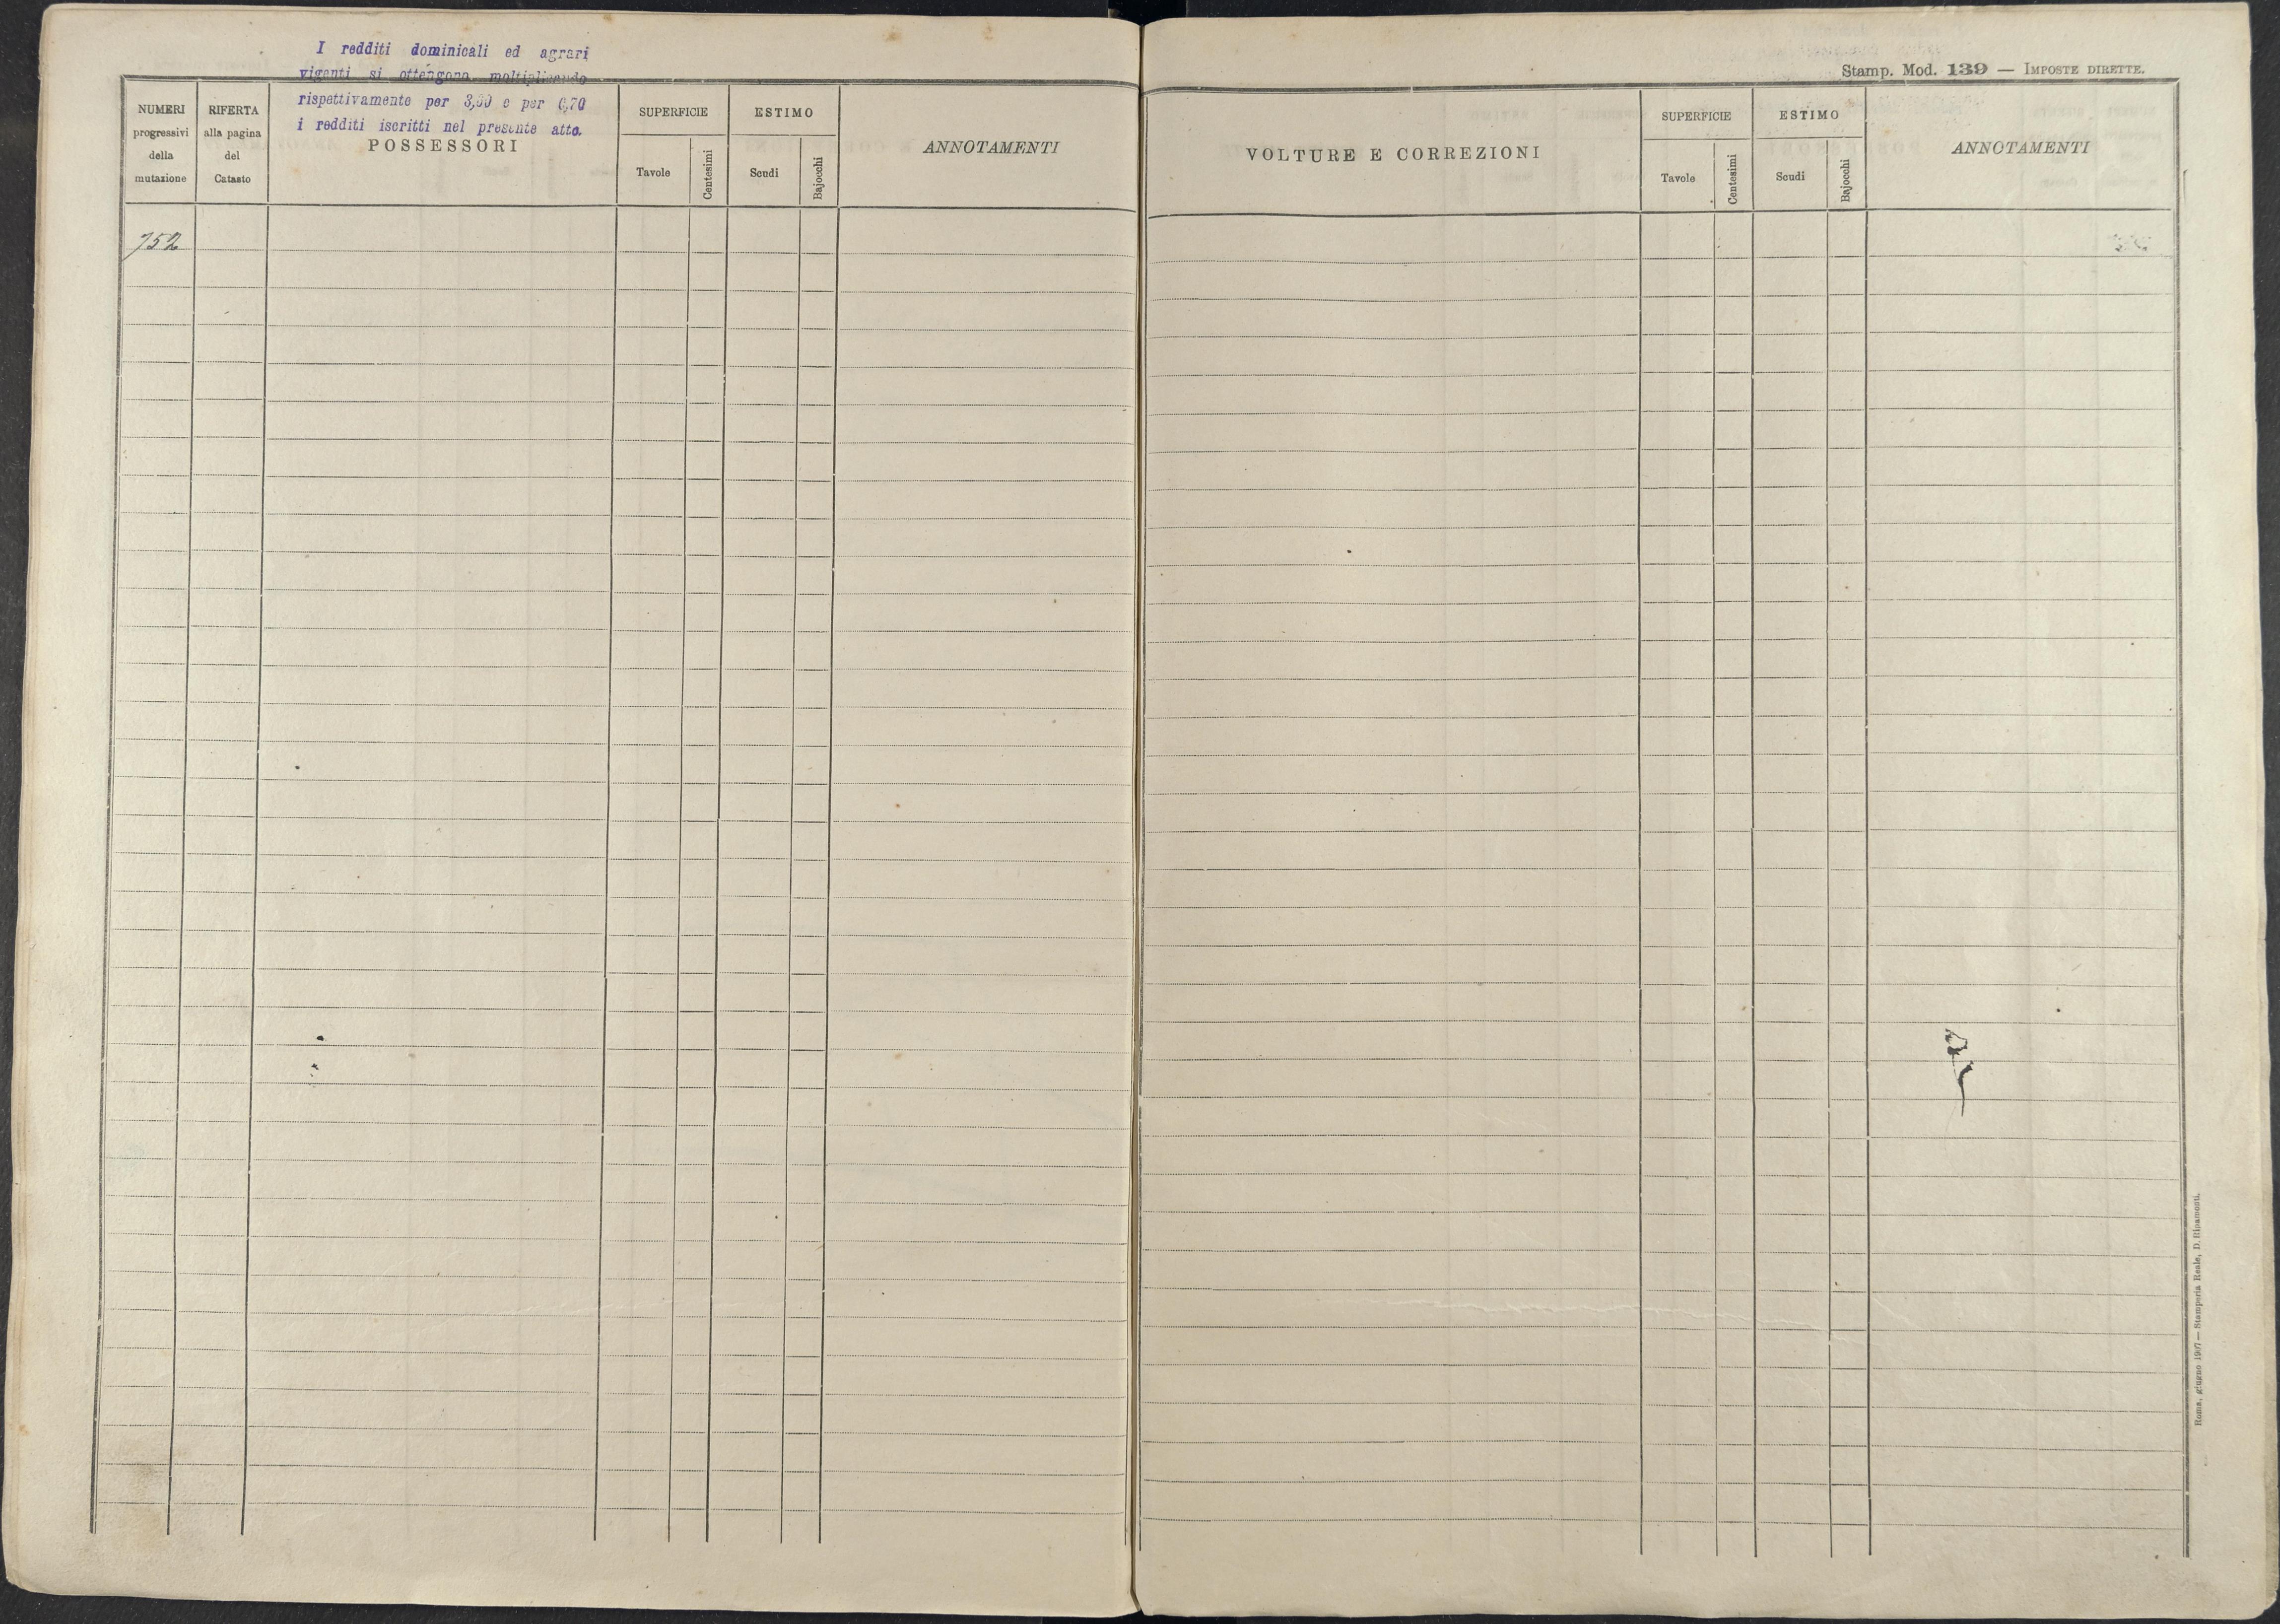 I redditi dominicali ed agrari
vigenti si ottengono moltiplicando
rispettivamente per 3,00 e per 0,70
i redditi iscritti nel presente atto.
NUMERI
progressivi
della
mutazione
RIFERTA
alla pagina
del
Catasto
POSSESSORI
SUPERFICIE
Tavole
Centesimi
ESTIMO
Scudi
Bajocchi
ANNOTAMENTI
752
Stamp. Mod. 139 — IMPOSTE DIRETTE.
VOLTURE E CORREZIONI
SUPERFICIE
Tavole
Centesimi
ESTIMO
Scudi
Bajocchi
ANNOTAMENTI
Roma, giugno 1907 — Stamperia Reale, D. Ripamonti.